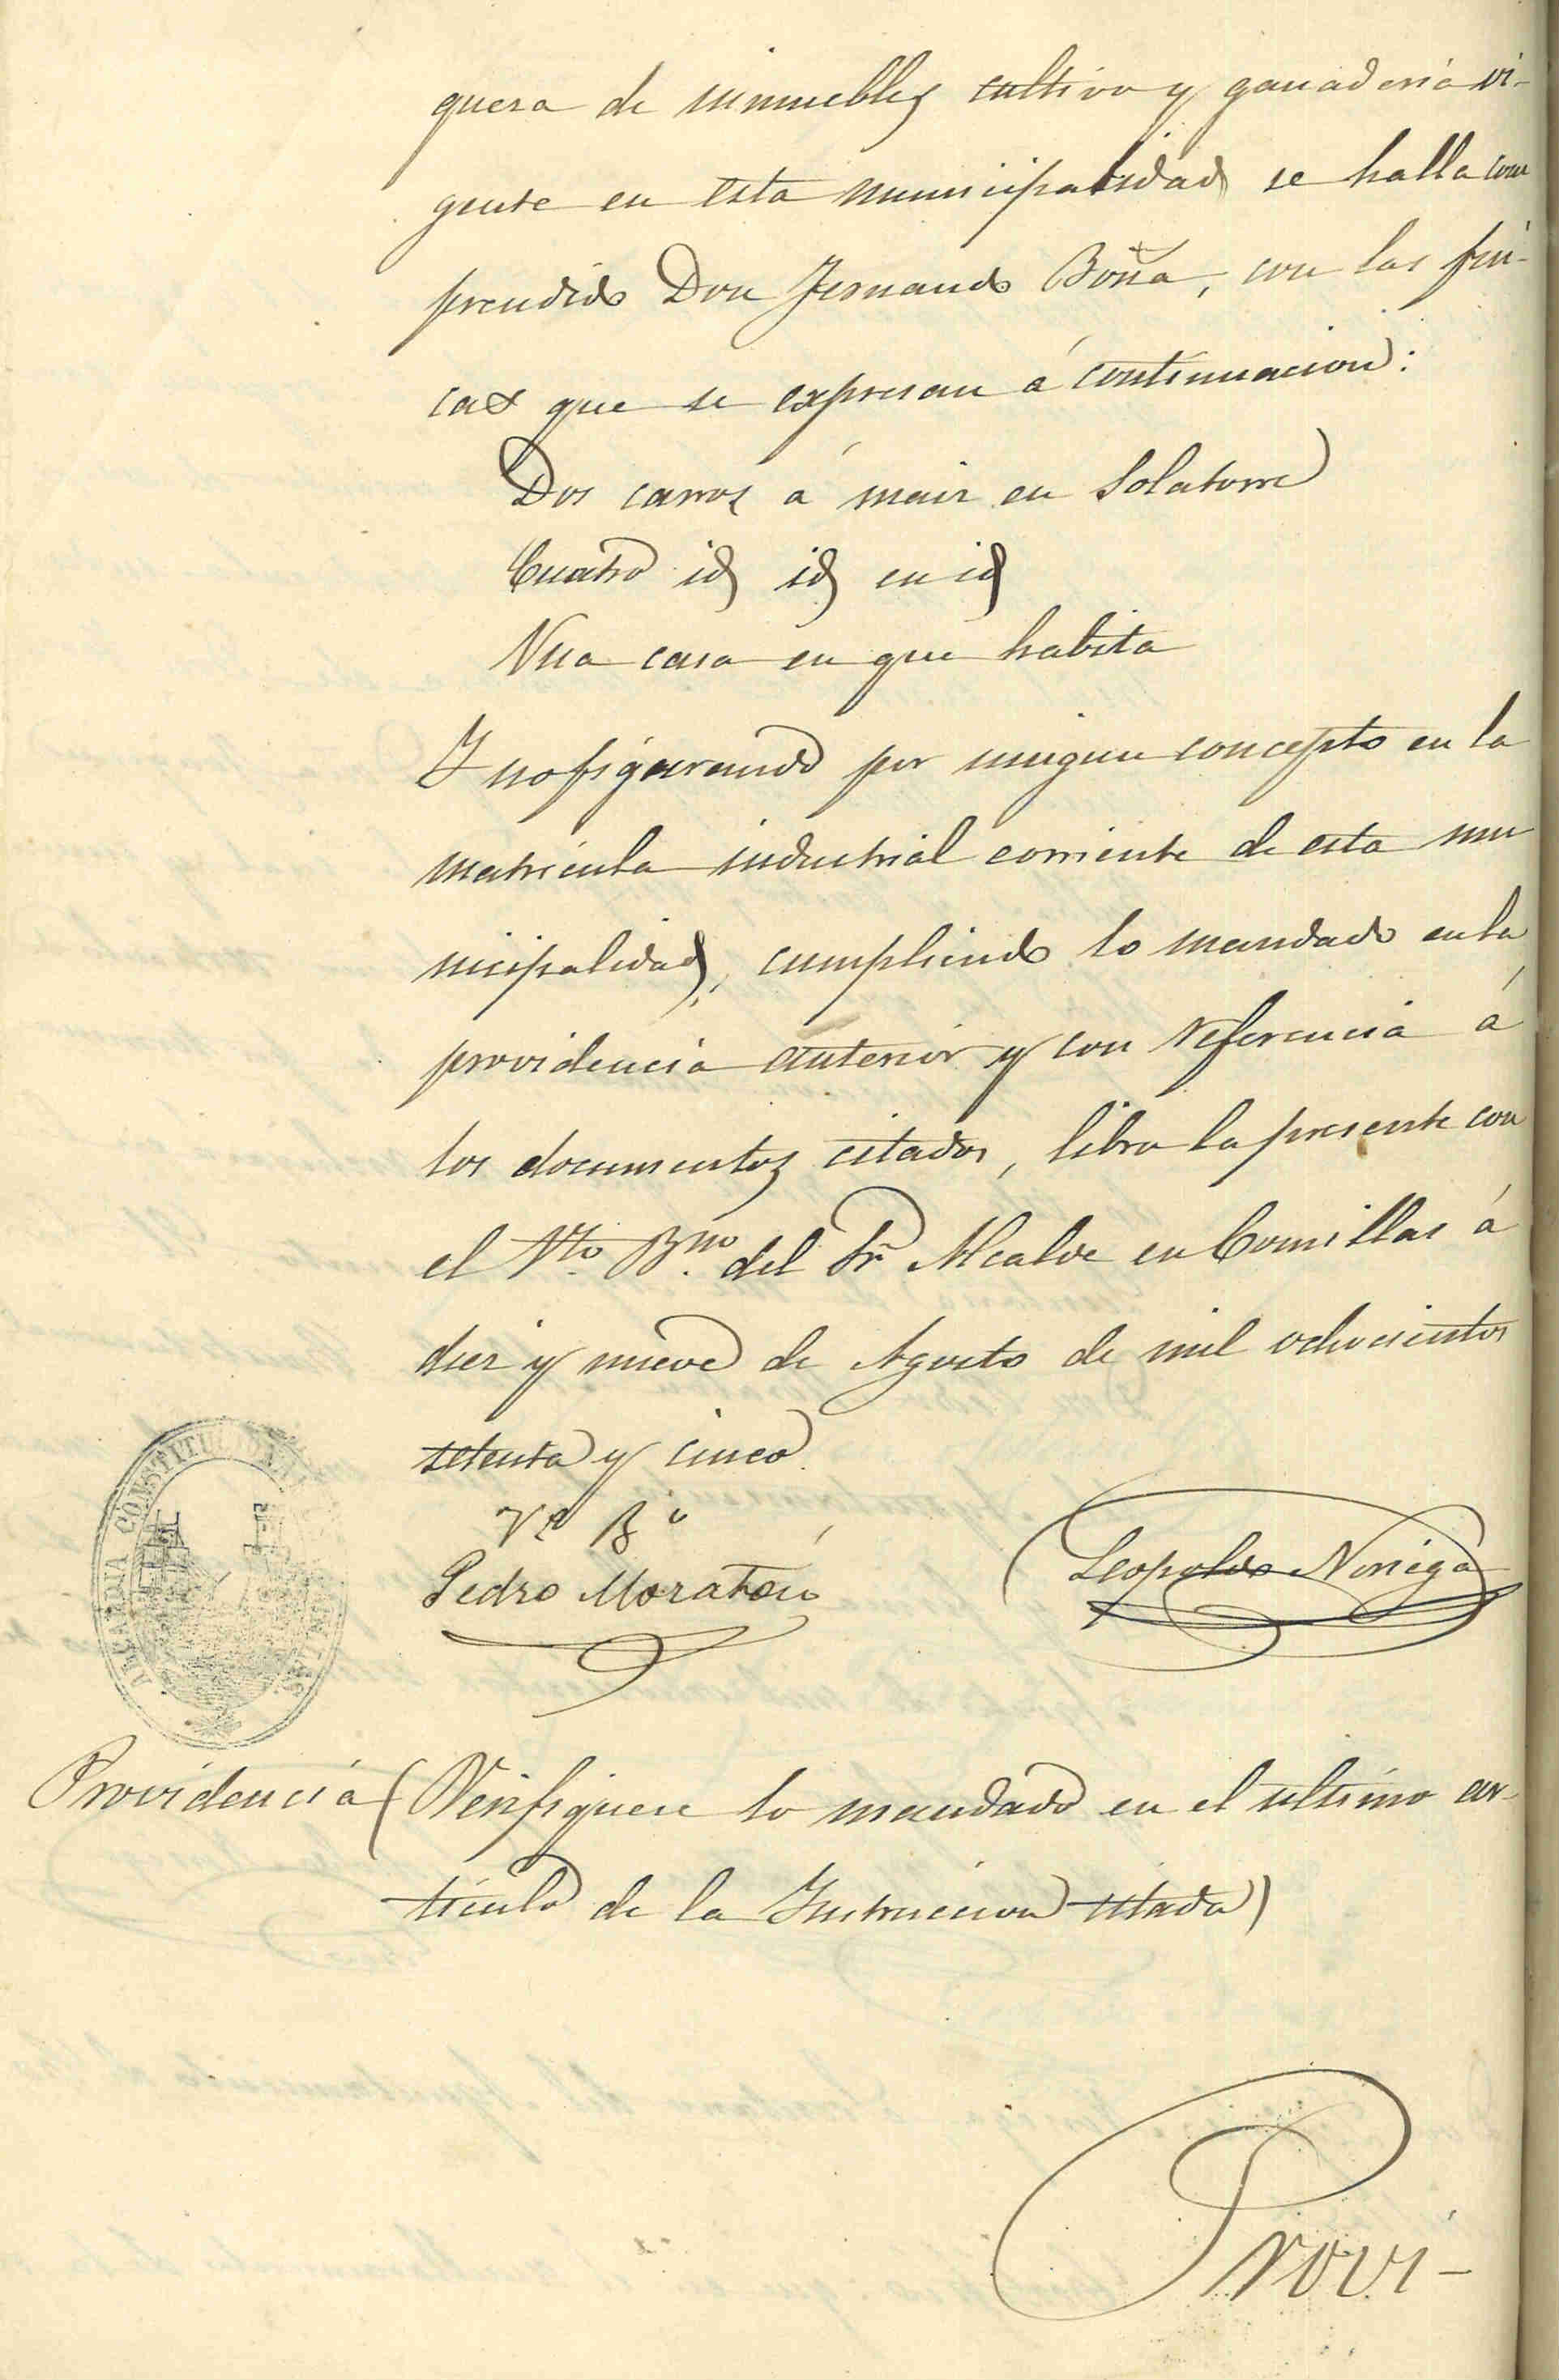 queza de inmuebles cultivo y ganaderia vi-
gente en esta municipalidad se halla com
prendido Don Fernando Boña, con las fin-
cas que se expresan á continuacion:
Dos carros á maiz en Solatorre
Cuatro id id en id
Una casa en que habita
Y no figurando por ningun concepto en la
matricula industrial corriente de esta mu
nicipalidad, cumpliendo lo mandado en la
providencia anterior y con referencia á
los documentos citados, libro la presente con
el Vto. Bno. del Sr. Alcalde en Comillas á
diez y nueve de Agosto de mil ochocientos
setenta y cinco
ALCALDIA CONSTITUCIONAL
Vº Bº
Pedro Moratón
Leopoldo Noriega
Providencia (Verifiquese lo mandado en el ultimo ar-
ticulo de la Instruccion citada)
Provi-